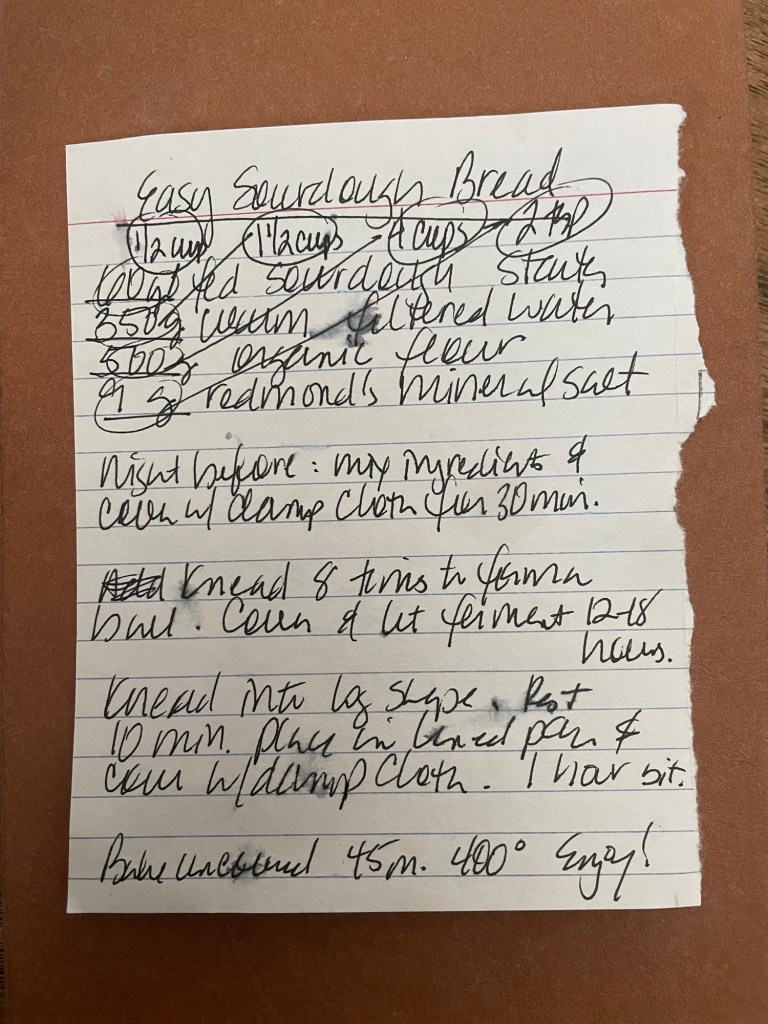 Easy Sourdough Bread
1/2 cup 1 1/2 cups 4 cups 2 tsp
60g fed sourdough starter
350g warm filtered water
500g organic flour
9 g redmond's mineral salt
Night before: mix ingredients &
cover w/ damp cloth for 30 min.
Knead 8 times to form a
ball. Cover & let ferment 12-18
hours.
Knead into log shape. Rest
10 min. Place in lined pan &
cover w/ damp cloth. 1 hour sit.
Bake uncovered 45 m. 400° Enjoy!